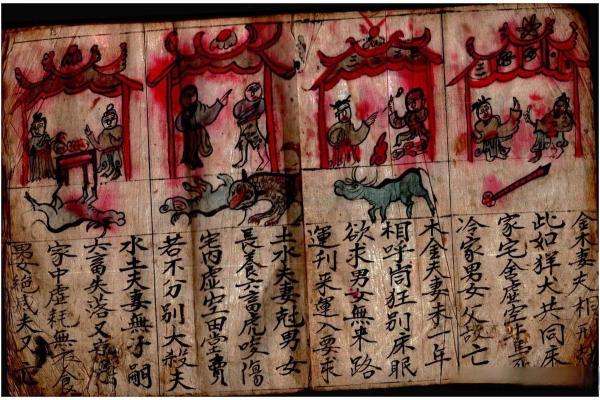 金木妻夫相刑
此如犬共同床
家宅舍虛空牛馬死
冷家男女父亡
木金夫妻未一年
相呼狂別床眠
欲求男女無來路
運來運入要求
土水夫妻尅男女
長養六畜虎咬傷
宅内虛空田蚕費
若不分別大殺夫
水土夫妻無子嗣
六畜失落又
家中虛耗無衣食
男女絕滅夫又